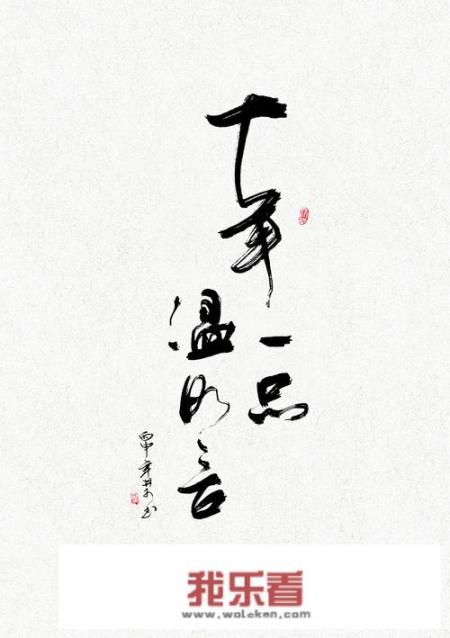 十年一品
温如言
丙申年
我乐看
www.woleken.com